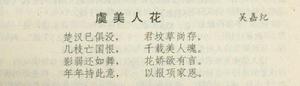 虞美人花 吴嘉纪
楚汉已俱没， 君坟草尚存。
几枝亡国恨， 千载美人魂。
影弱还如舞， 花娇欲有言。
年年持此意， 以报项家恩。